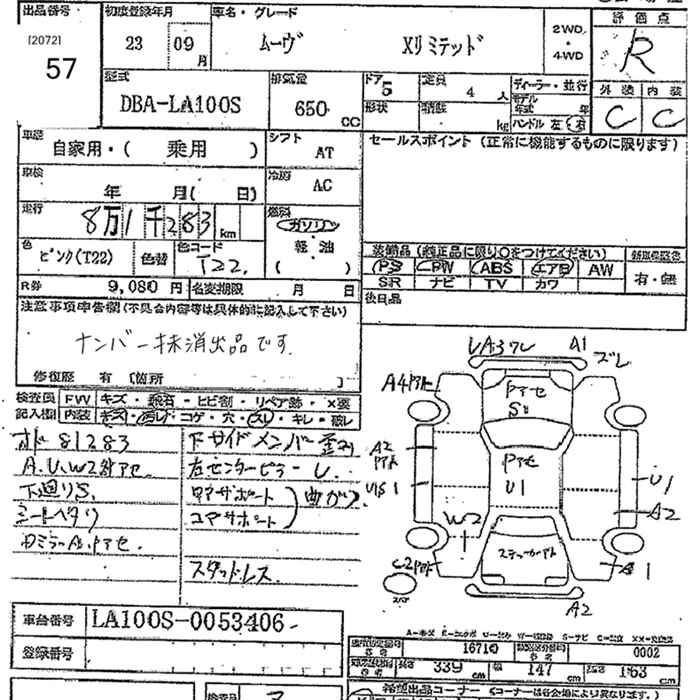 出品番号 初度登録年月 車名・グレード 評価点
[2072] 23 09月 ムーヴ Xリミテッド 2WD・4WD R
57
型式 排気量 ドア 5 定員 4人 ディーラー・並行 外装 内装
DBA-LA100S 650 CC 形状 積載 kg モデル年式 年 ハンドル 左・右 C C
車歴 自家用・( 乗用 ) シフト AT セールスポイント (正常に機能するものに限ります)
車検 年 月( 日) 冷房 AC
走行 8万1千283 km 燃料 ガソリン・軽油 ( )
色 ピンク(T22) 色替 色コード T22. 装備品 (純正品に限り○をつけてください)
PS PW ABS エアB AW 有・無
R券 9,080円 名変期限 月 日 SR ナビ TV カワ
注意事項申告欄(不具合内容等は具体的に記入して下さい) 後日品
ナンバー抹消出品です
修復歴 有 [箇所 ]
検査員記入欄 FW キズ・飛石・ヒビ割・リペア跡・X要
内装 キズ・汚レ・コゲ・穴・スレ・キレ・破レ
オド 81283 下サイドメンバー歪み
A.U.W2外アセ. 左センターピラーU.
下廻りS. ロアサポート 曲がり
シートヘタリ コアサポート
Dミラー A1.アセ.
スタッドレス
UA3ワレ A1 ズレ
A4アト アセ S1
A2 アト アセ U1 U1
U1S1 A2
W2 ステッカーアト
C2アト A1
A2
車台番号 LA100S-0053406
登録番号
A-キズ
16710 0002
長さ 339 cm 幅 147 cm 高さ 163 cm